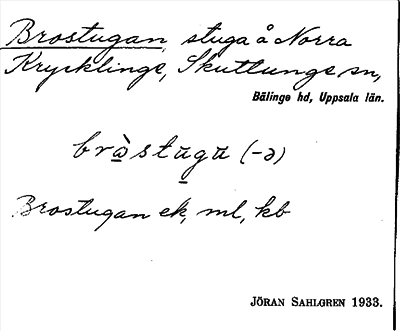 Brostugan, stuga å Norra
Krycklinge, Skuttunge sn,
Bälinge hd, Uppsala län.
bròstuga (-ə)
Brostugan ek, ml, kb
JÖRAN SAHLGREN 1933.